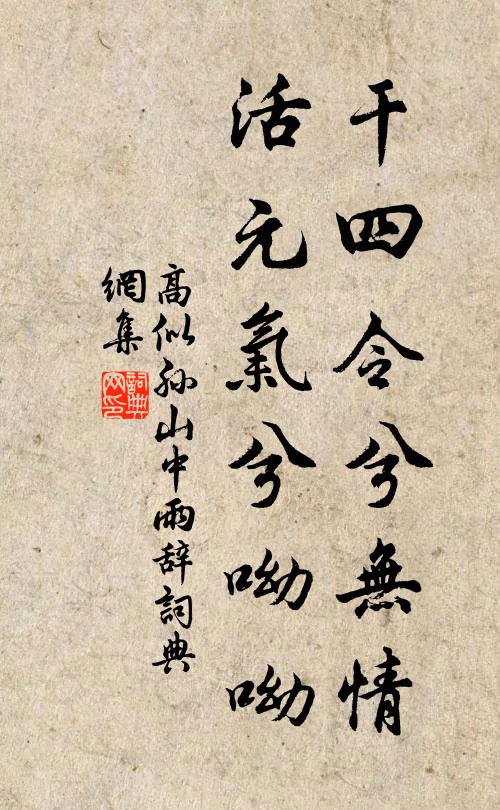 干四令兮無情
活元氣兮呦呦
高似孙山中雨辞詞典
網集
詞典網印